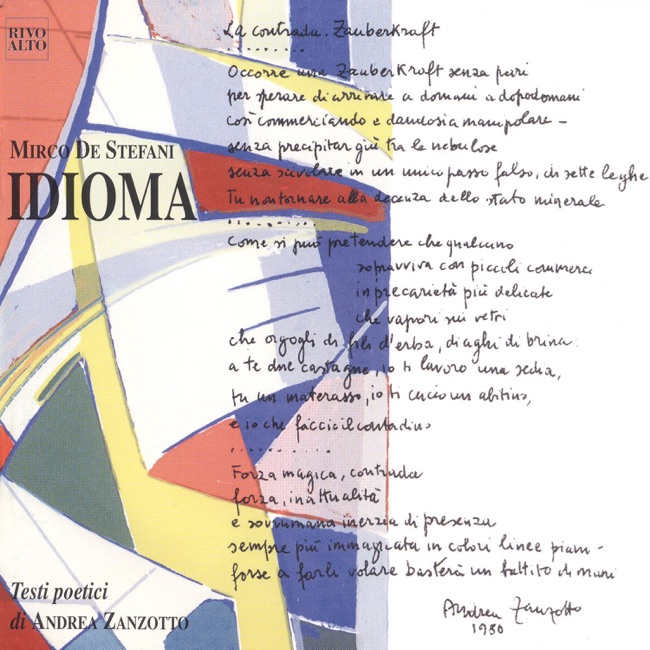 RIVO
ALTO
MIRCO DE STEFANI
IDIOMA
La contrada. Zauberkraft
. . . . . . . . .
Occorre una Zauberkraft senza pari
per sperare di arrivare a domani a dopodomani
così commerciando e manipolare –
senza precipitar giù tra le nebulose
senza scivolare in un unico passo falso, di sette leghe
Tu non tornare alla decenza dello stato minerale
. . . . . . . . .
Come si può pretendere che qualcuno
sopravviva con piccoli commerci
in precarietà più delicate
che vapori sui vetri
che orgogli di fili d'erba, di aghi di brina:
a te due castagne, io ti lavoro una sedia,
tu un materasso, io ti cucio un abitino,
e io che faccio il contadino
. . . . . . . . .
Forza magica, contrada
forza, inattualità
e sovrumana inerzia di presenza
sempre più immaginata in colori linee piani –
forse a farli volare basterà un battito di mani
Andrea Zanzotto
1980
Testi poetici
di ANDREA ZANZOTTO